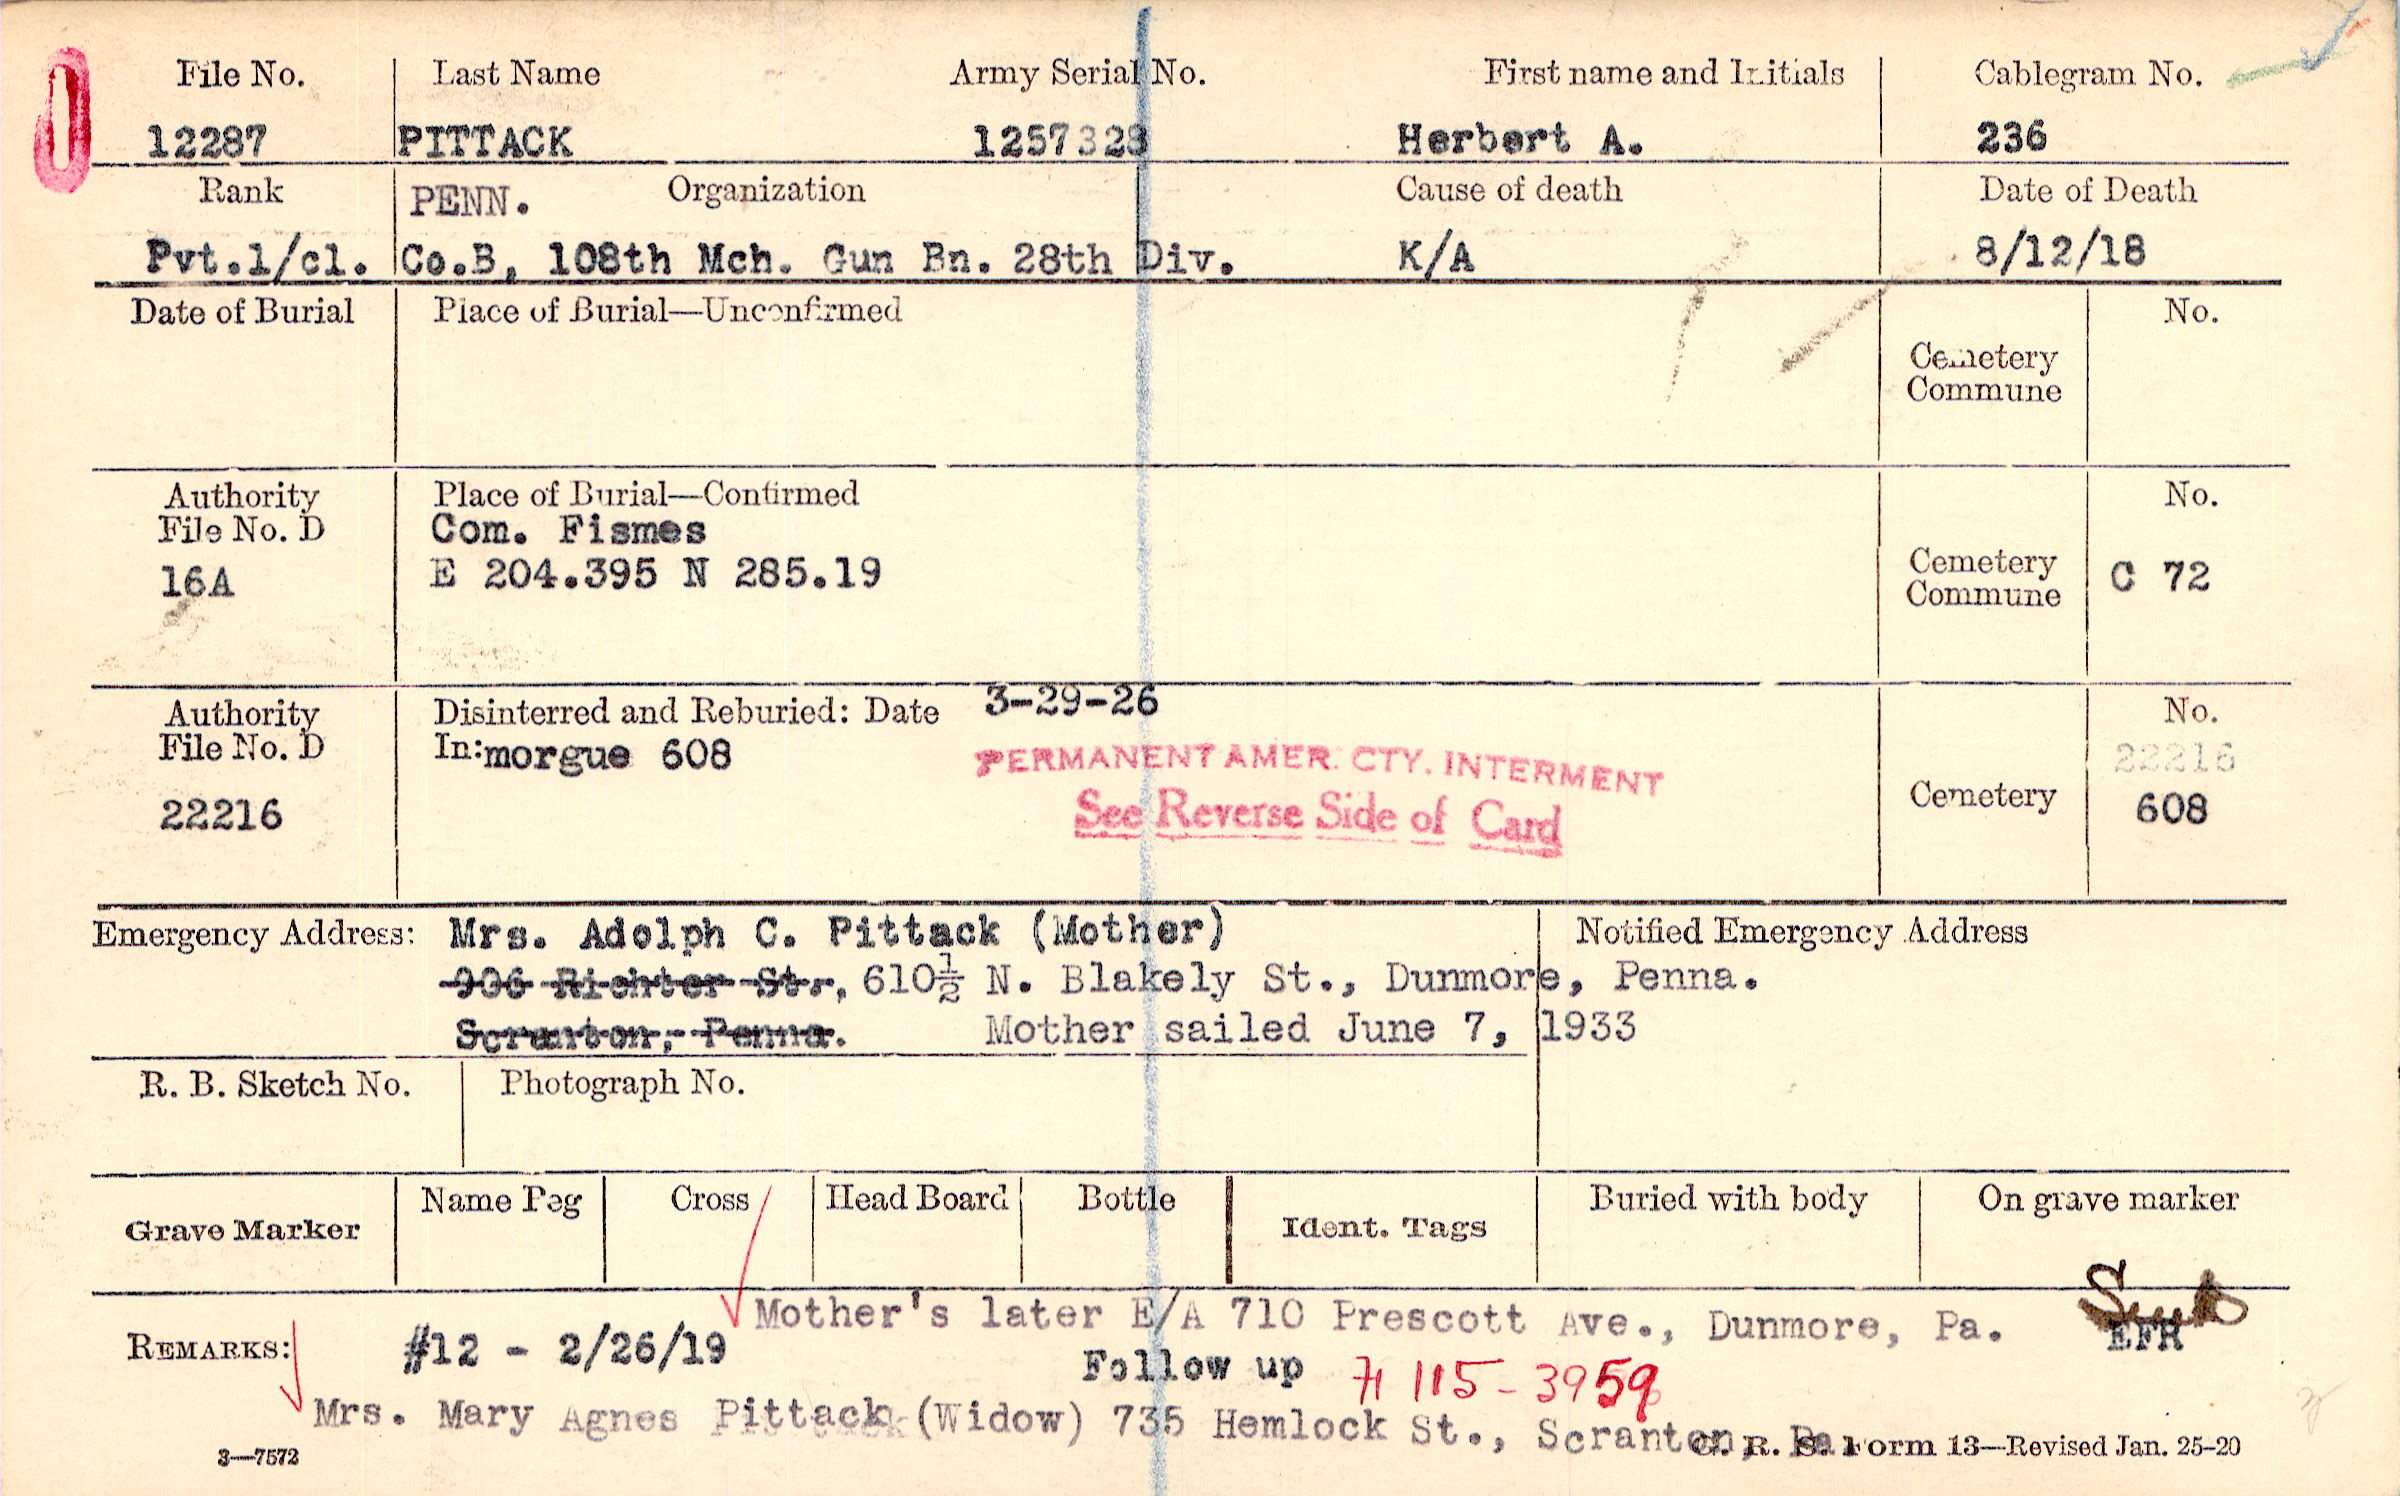 File No. Last Name Army Serial No. First name and Initials Cablegram No.
12287 PITTACK 1257328 Herbert A. 236
Rank PENN. Organization Cause of death Date of Death
Pvt.1/cl. Co.B, 108th Mch. Gun Bn. 28th Div. K/A 8/12/18
Date of Burial Place of Burial—Unconfirmed No.
Cemetery
Commune
Authority Place of Burial—Confirmed No.
File No. D Com. Fismes
16A E 204.395 N 285.19 Cemetery C 72
Commune
Authority Disinterred and Reburied: Date 3-29-26 No.
File No. D In: morgue 608 22216
PERMANENT AMER. CTY. INTERMENT
22216 See Reverse Side of Card Cemetery 608
Emergency Address: Mrs. Adolph C. Pittack (Mother) Notified Emergency Address
906 Richter St., 610½ N. Blakely St., Dunmore, Penna.
Scranton, Penna. Mother sailed June 7, 1933
R. B. Sketch No. Photograph No.
Grave Marker Name Peg Cross Head Board Bottle Ident. Tags Buried with body On grave marker
Mother's later E/A 710 Prescott Ave., Dunmore, Pa. EFR
REMARKS: #12 - 2/26/19
Follow up 115-3959
Mrs. Mary Agnes Pittack (Widow) 735 Hemlock St., Scranton, Pa.
3—7572 G. R. S. Form 13—Revised Jan. 25-20